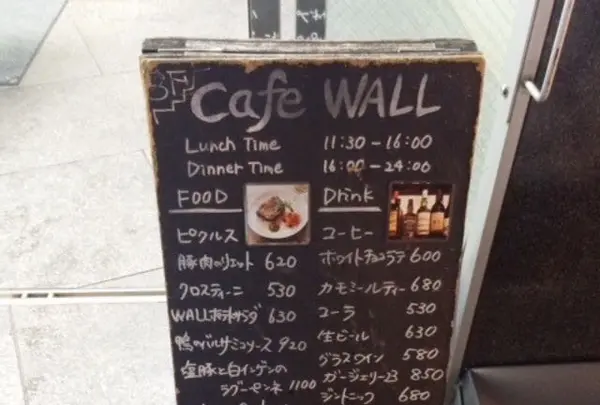 3F
Cafe WALL
Lunch Time 11:30-16:00
Dinner Time 16:00-24:00
FOOD
Drink
ピクルス
豚肉のリエット 620
クロスティーニ 530
WALLポテトサラダ 630
鴨のバルサミコソース 920
塩豚と白インゲンの
ラグーペンネ 1100
コーヒー
ホワイトチョコラテ 600
カモミールティー 680
コーラ 530
生ビール 630
グラスワイン 580
ガージェリー23 850
ジントニック 680